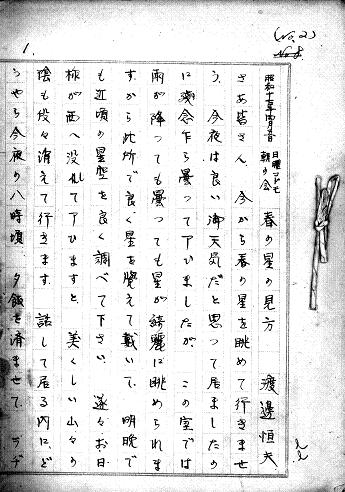 (No.2)
1.
昭和十年四月五日 日曜コドモ朝の会 春の星の見方 渡邊恒夫
さあ皆さん 今から春の星を眺めて行きませ
う、今夜は良い御天気だと思って居ましたの
に残念乍ら曇ってアひましたが この室では
雨が降っても曇っても星が綺麗に眺められま
すから此所で良く星を覚えて戴いて、明晩で
も近頃の星空を良く調べて下さい 遂々お日
様が西へ没れてアひますと 美くしい山々の
陰も段々消えて行きます 話して居る内にど
うやら今夜の八時頃 夕飯を済ませて ラヂ